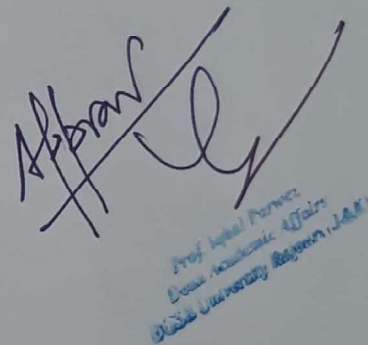 Prof. Iqbal Parwez
Dean Academic Affairs
BGSB University Rajouri, J&K